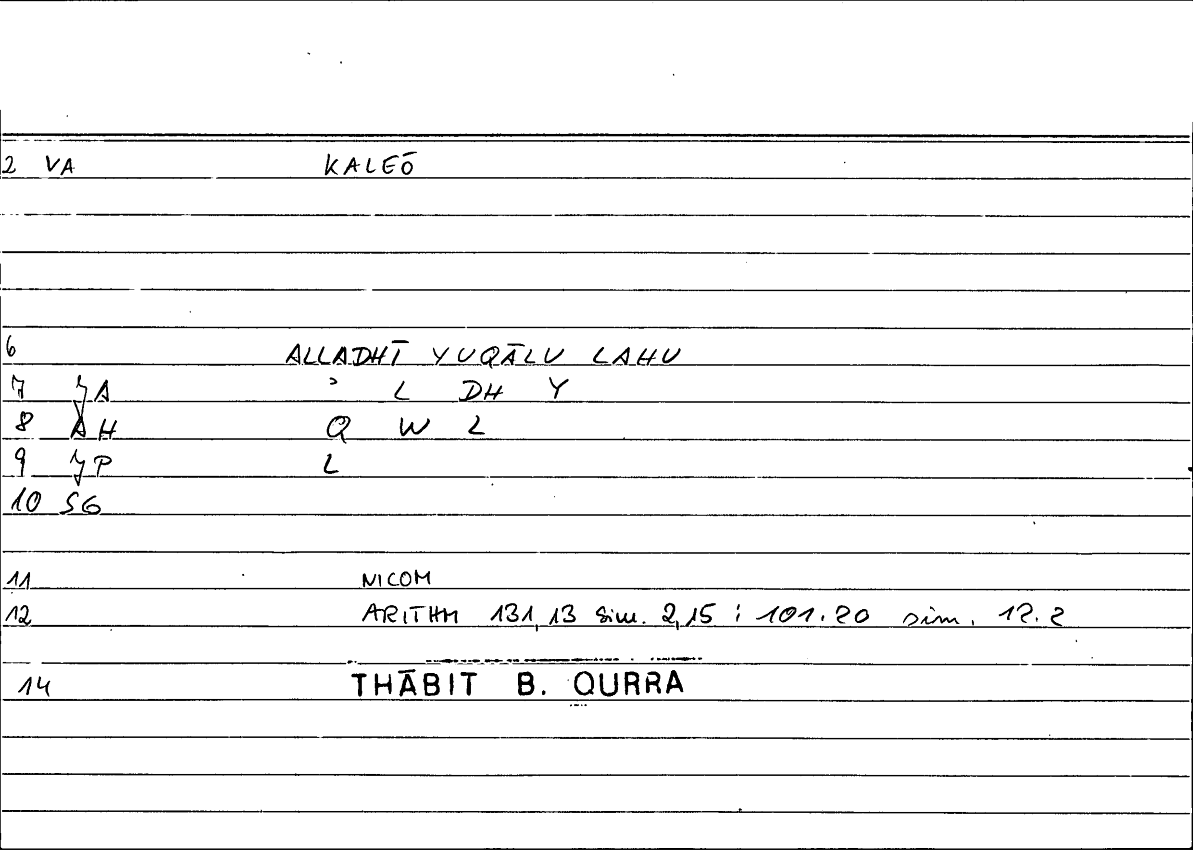 2 VA KALEŌ
6 ALLADHĪ YUQĀLU LAHU
7 A ʾ L DH Y
8 AH Q W L
9 P L
10 SG
11 NICOM
12 ARITHM 131,13 sim. 2,15 ; 101.20 sim. 12.2
14 THĀBIT B. QURRA